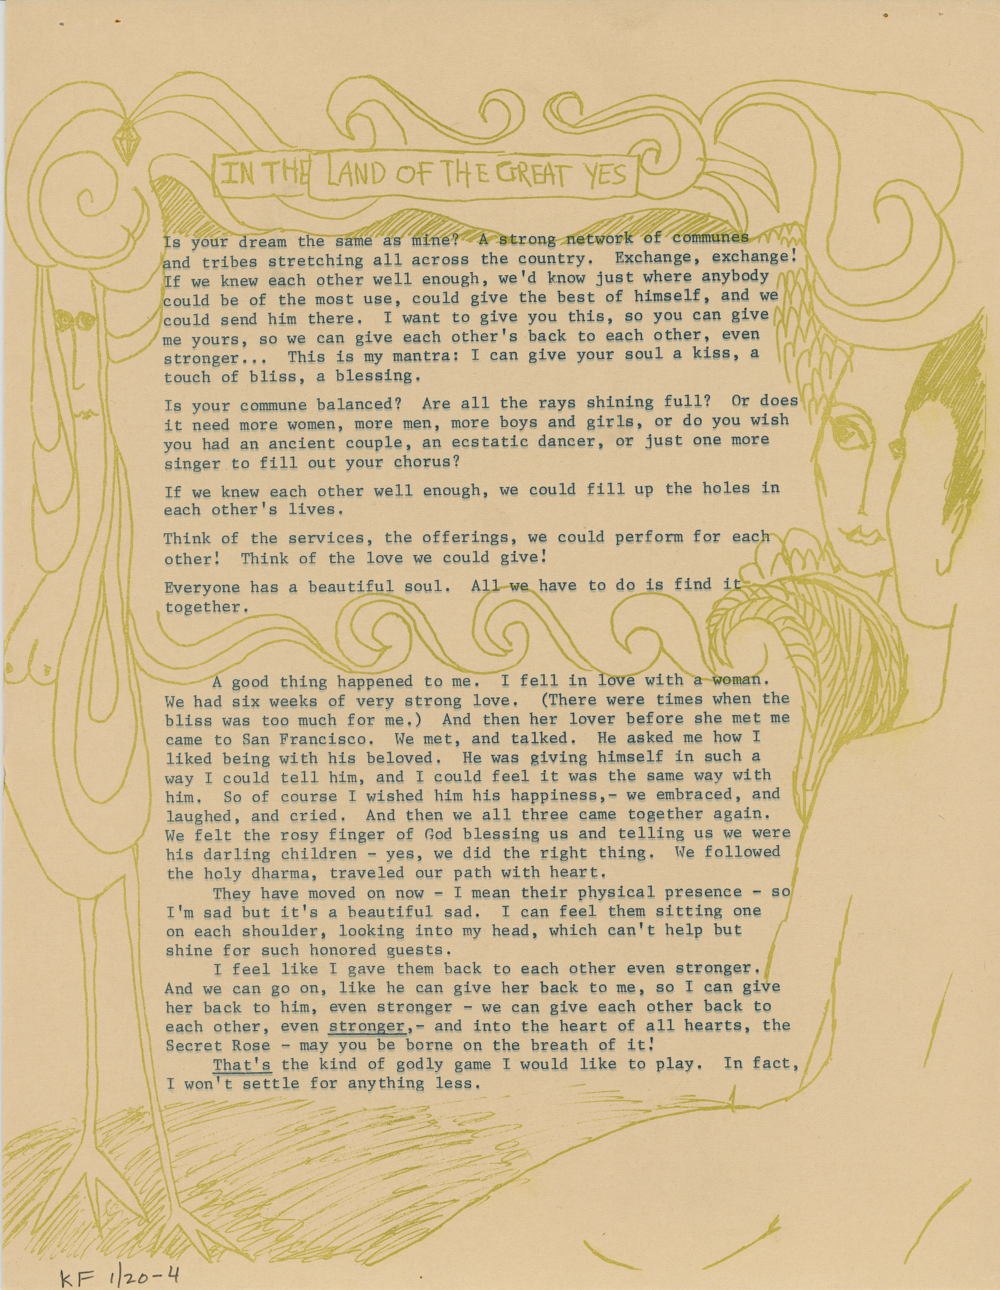 IN THE LAND OF THE GREAT YES
Is your dream the same as mine?  A strong network of communes
and tribes stretching all across the country.  Exchange, exchange!
If we knew each other well enough, we'd know just where anybody
could be of the most use, could give the best of himself, and we
could send him there.  I want to give you this, so you can give
me yours, so we can give each other's back to each other, even
stronger...  This is my mantra: I can give your soul a kiss, a
touch of bliss, a blessing.
Is your commune balanced?  Are all the rays shining full?  Or does
it need more women, more men, more boys and girls, or do you wish
you had an ancient couple, an ecstatic dancer, or just one more
singer to fill out your chorus?
If we knew each other well enough, we could fill up the holes in
each other's lives.
Think of the services, the offerings, we could perform for each
other!  Think of the love we could give!
Everyone has a beautiful soul.  All we have to do is find it
together.
A good thing happened to me.  I fell in love with a woman.
We had six weeks of very strong love.  (There were times when the
bliss was too much for me.)  And then her lover before she met me
came to San Francisco.  We met, and talked.  He asked me how I
liked being with his beloved.  He was giving himself in such a
way I could tell him, and I could feel it was the same way with
him.  So of course I wished him his happiness,- we embraced, and
laughed, and cried.  And then we all three came together again.
We felt the rosy finger of God blessing us and telling us we were
his darling children - yes, we did the right thing.  We followed
the holy dharma, traveled our path with heart.
They have moved on now - I mean their physical presence - so
I'm sad but it's a beautiful sad.  I can feel them sitting one
on each shoulder, looking into my head, which can't help but
shine for such honored guests.
I feel like I gave them back to each other even stronger.
And we can go on, like he can give her back to me, so I can give
her back to him, even stronger - we can give each other back to
each other, even stronger,- and into the heart of all hearts, the
Secret Rose - may you be borne on the breath of it!
That's the kind of godly game I would like to play.  In fact,
I won't settle for anything less.
KF 1/20-4